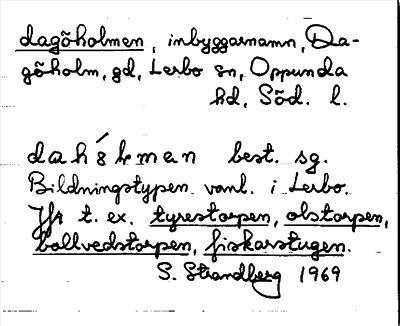 dagöholmen, inbyggarnamn, Da-
göholm, gd, Lerbo sn, Oppunda
hd, Söd. l.
best. sg.
Bildningstypen vanl. i Lerbo.
Jfr t. ex. tyrestorpen, olstorpen,
bollvedstorpen, fiskarstugen.
S. Strandberg 1969